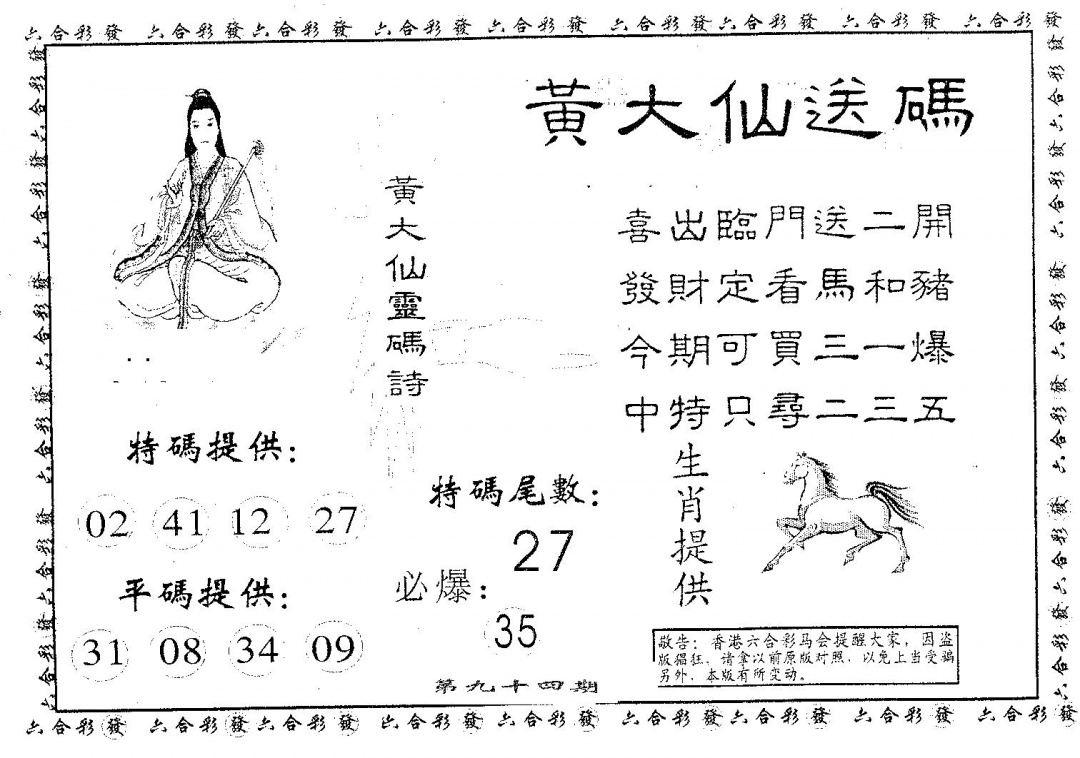 六合彩發 六合彩發六合彩發 六合彩發 六合彩發 六合彩發六合彩發 六合彩發 六合彩發
黃大仙送碼
黃大仙靈碼詩
喜出臨門送二開
發財定看馬和豬
今期可買三一爆
中特只尋二三五
特碼提供：
02 41 12 27
平碼提供：
31 08 34 09
特碼尾數：
27
必爆：
35
生肖提供
敬告：香港六合彩马会提醒大家，因盗
版猖狂，请拿以前原版对照，以免上当受骗
另外，本版有所变动。
第九十四期
六合彩發 六合彩發六合彩發 六合彩發 六合彩發 六合彩發六合彩發 六合彩發 六合彩發